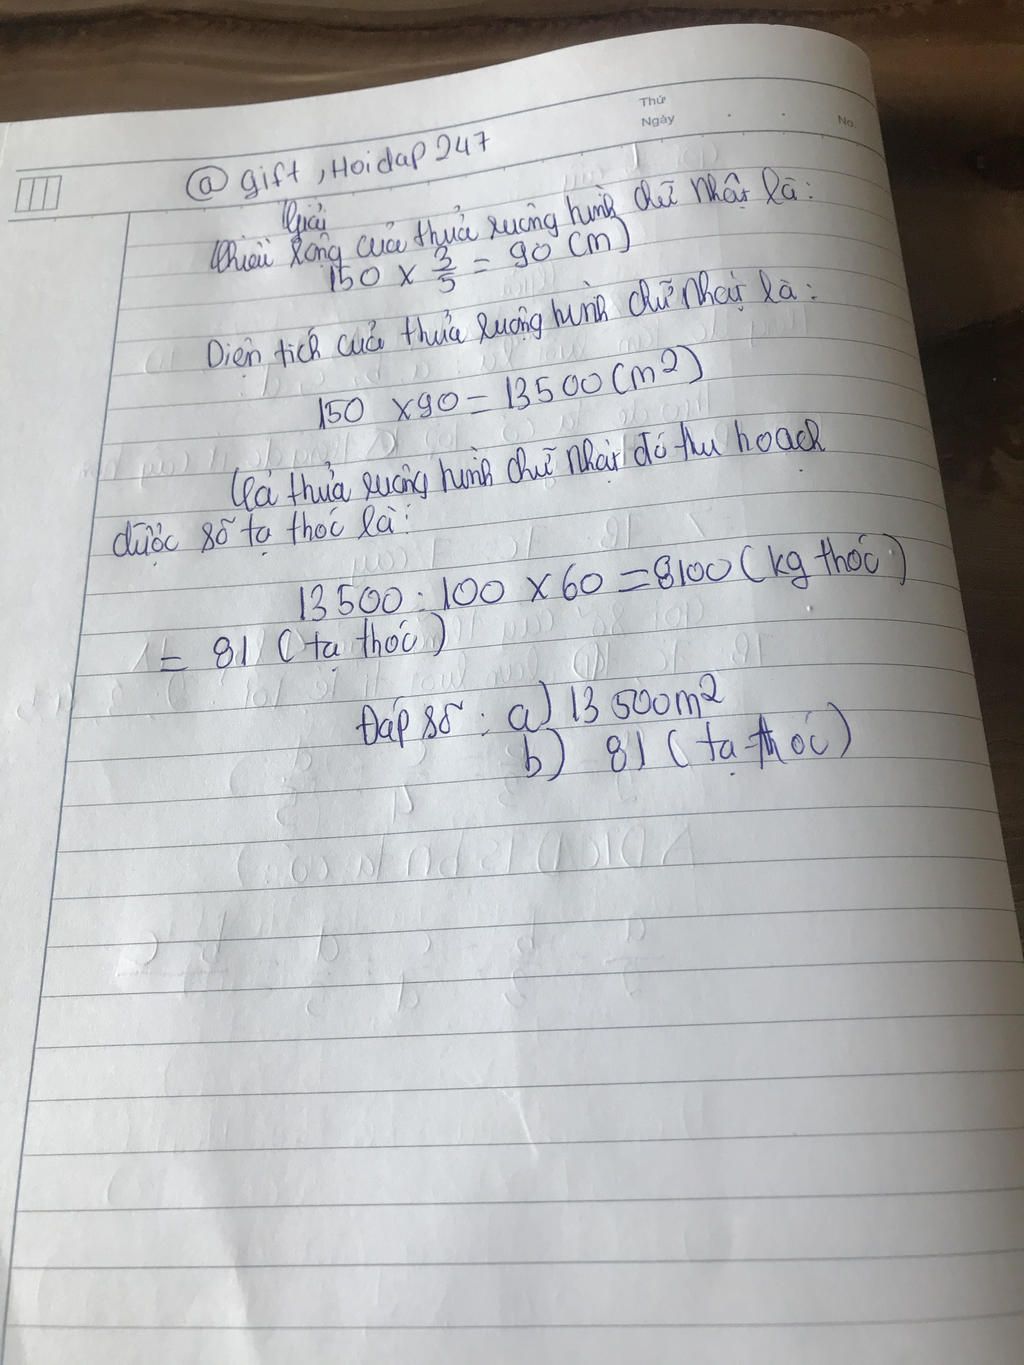 Thứ
Ngày
No.
@gift, Hoidap247
Giải
Chiều rộng của thửa ruộng hình chữ nhật là:
150 x 3/5 = 90 (m)
Diện tích của thửa ruộng hình chữ nhật là:
150 x 90 = 13500 (m2)
Cả thửa ruộng hình chữ nhật đó thu hoạch
được số tạ thóc là:
13500 : 100 x 60 = 8100 (kg thóc)
= 81 (tạ thóc)
Đáp số : a) 13500m2
b) 81 (tạ thóc)